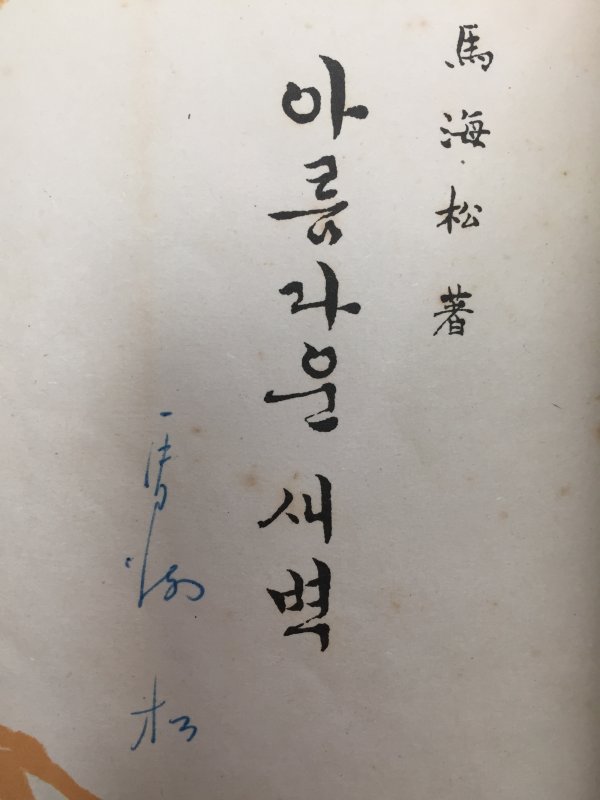 馬海松著
아름다운 새벽
馬海松